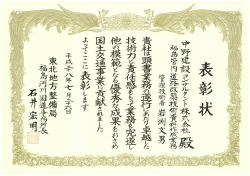 表彰状
中野建設コンサルタント株式会社 殿
福島管内道路改築技術資料作成業務
管理技術者 岩渕文男
貴社は頭書業務の遂行にあたり卓越した
技術力と責任感をもって業務を完遂し
他の模範となる優秀な成果をおさめ
国土交通事業に貢献されました
よってここに表彰します
平成二十八年七月二十六日
東北地方整備局
福島河川国道事務所長
石井宏明